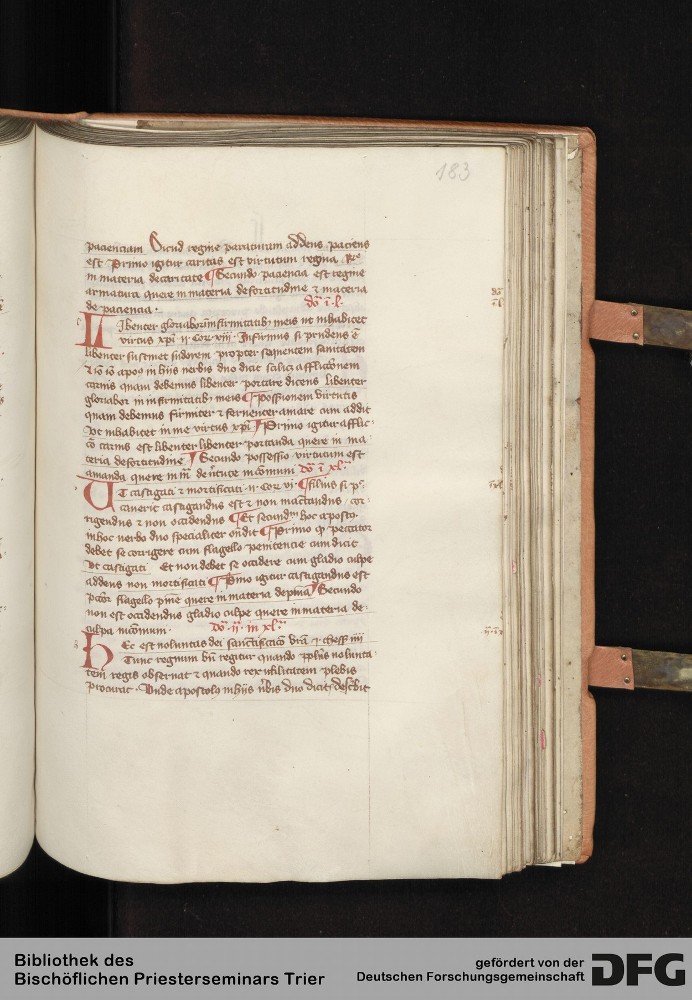 183
pacienciam Dicud regine paraturam addens paciens
est Primo igitur caritas est virtutum regina Re
in materia de caritate Secundo paciencia est regine
armatura quere in materia de fortitudine et materia
de paciencia.
do i l.
Libenter gloriabor in infirmitatib; meis ut inhabitet
virtus xpi ii Cor xii. Infirmus si prudens e
libenter sustinet sudorem propter sequentem sanitatem
et io apos in hiis verbis duo dicit scilicet afflictionem
carnis quam debemus libenter portare dicens libenter
gloriabor in infirmitatib; meis possessionem virtutis
quam debemus firmiter et ferventer amare cum addit
Vt inhabitet in me virtus xpi Primo igitur afflic
co carnis est libenter libenter portanda quere in ma
teria de fortitudine Secundo possessio virtutum est
amanda quere in m de virtute in communi do i xl
UT castigati et mortificati ii Cor vi. filius si p
caverit castigandus est et non mactandus cor
rigendus et non occidendus Et secundum hoc aposto.
in hoc verbo duo specialiter ondit Primo q peccator
debet se corrigere cum flagello penitencie cum dicit
Vt castigati Et non debet se occidere cum gladio culpe
addens non mortificati Pmo igitur castigandus est
pctor flagello pnie quere in materia de pnia Secundo
non est occidendus gladio culpe quere in materia de
culpa in communi.
do ii in xl
HEc est voluntas dei sanctificatio vra i thess iiii
Tunc regnum bn regitur quando pplus volunta
tem regis observat et quando rex utilitatem plebis
procurat. Unde apostolus in hiis vbis duo dicit describit
Bibliothek des
Bischöflichen Priesterseminars Trier
gefördert von der
Deutschen Forschungsgemeinschaft
DFG